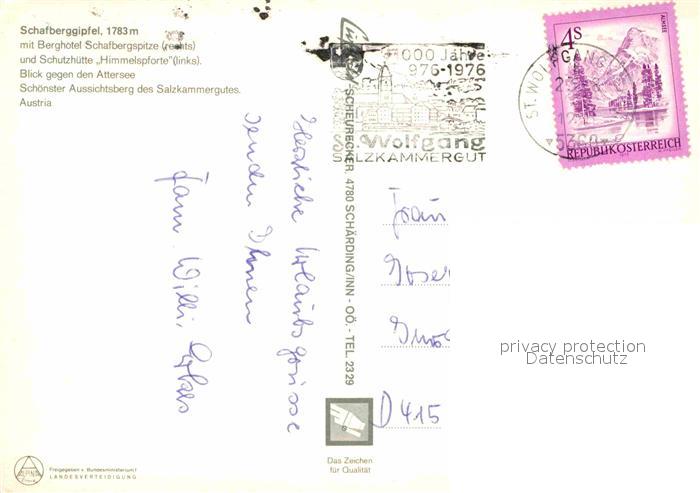 Schafberggipfel, 1783 m
mit Berghotel Schafbergspitze (rechts)
und Schutzhütte „Himmelspforte"(links).
Blick gegen den Attersee
Schönster Aussichtsberg des Salzkammergutes.
Austria
Herzliche Urlaubsgrüsse
senden Ihnen
Fam. Willi
SCHEURECKER, 4780 SCHÄRDING/INN - OÖ. - TEL. 2329
1000 Jahre
976-1976
St. Wolfgang
SALZKAMMERGUT
ST. WOLFGANG
5360
4S
ALMSEE
REPUBLIK ÖSTERREICH
Frau
D 415
privacy protection
Datenschutz
Das Zeichen
für Qualität
ALPINA
Freigegeben v. Bundesministerium f
LANDESVERTEIDIGUNG